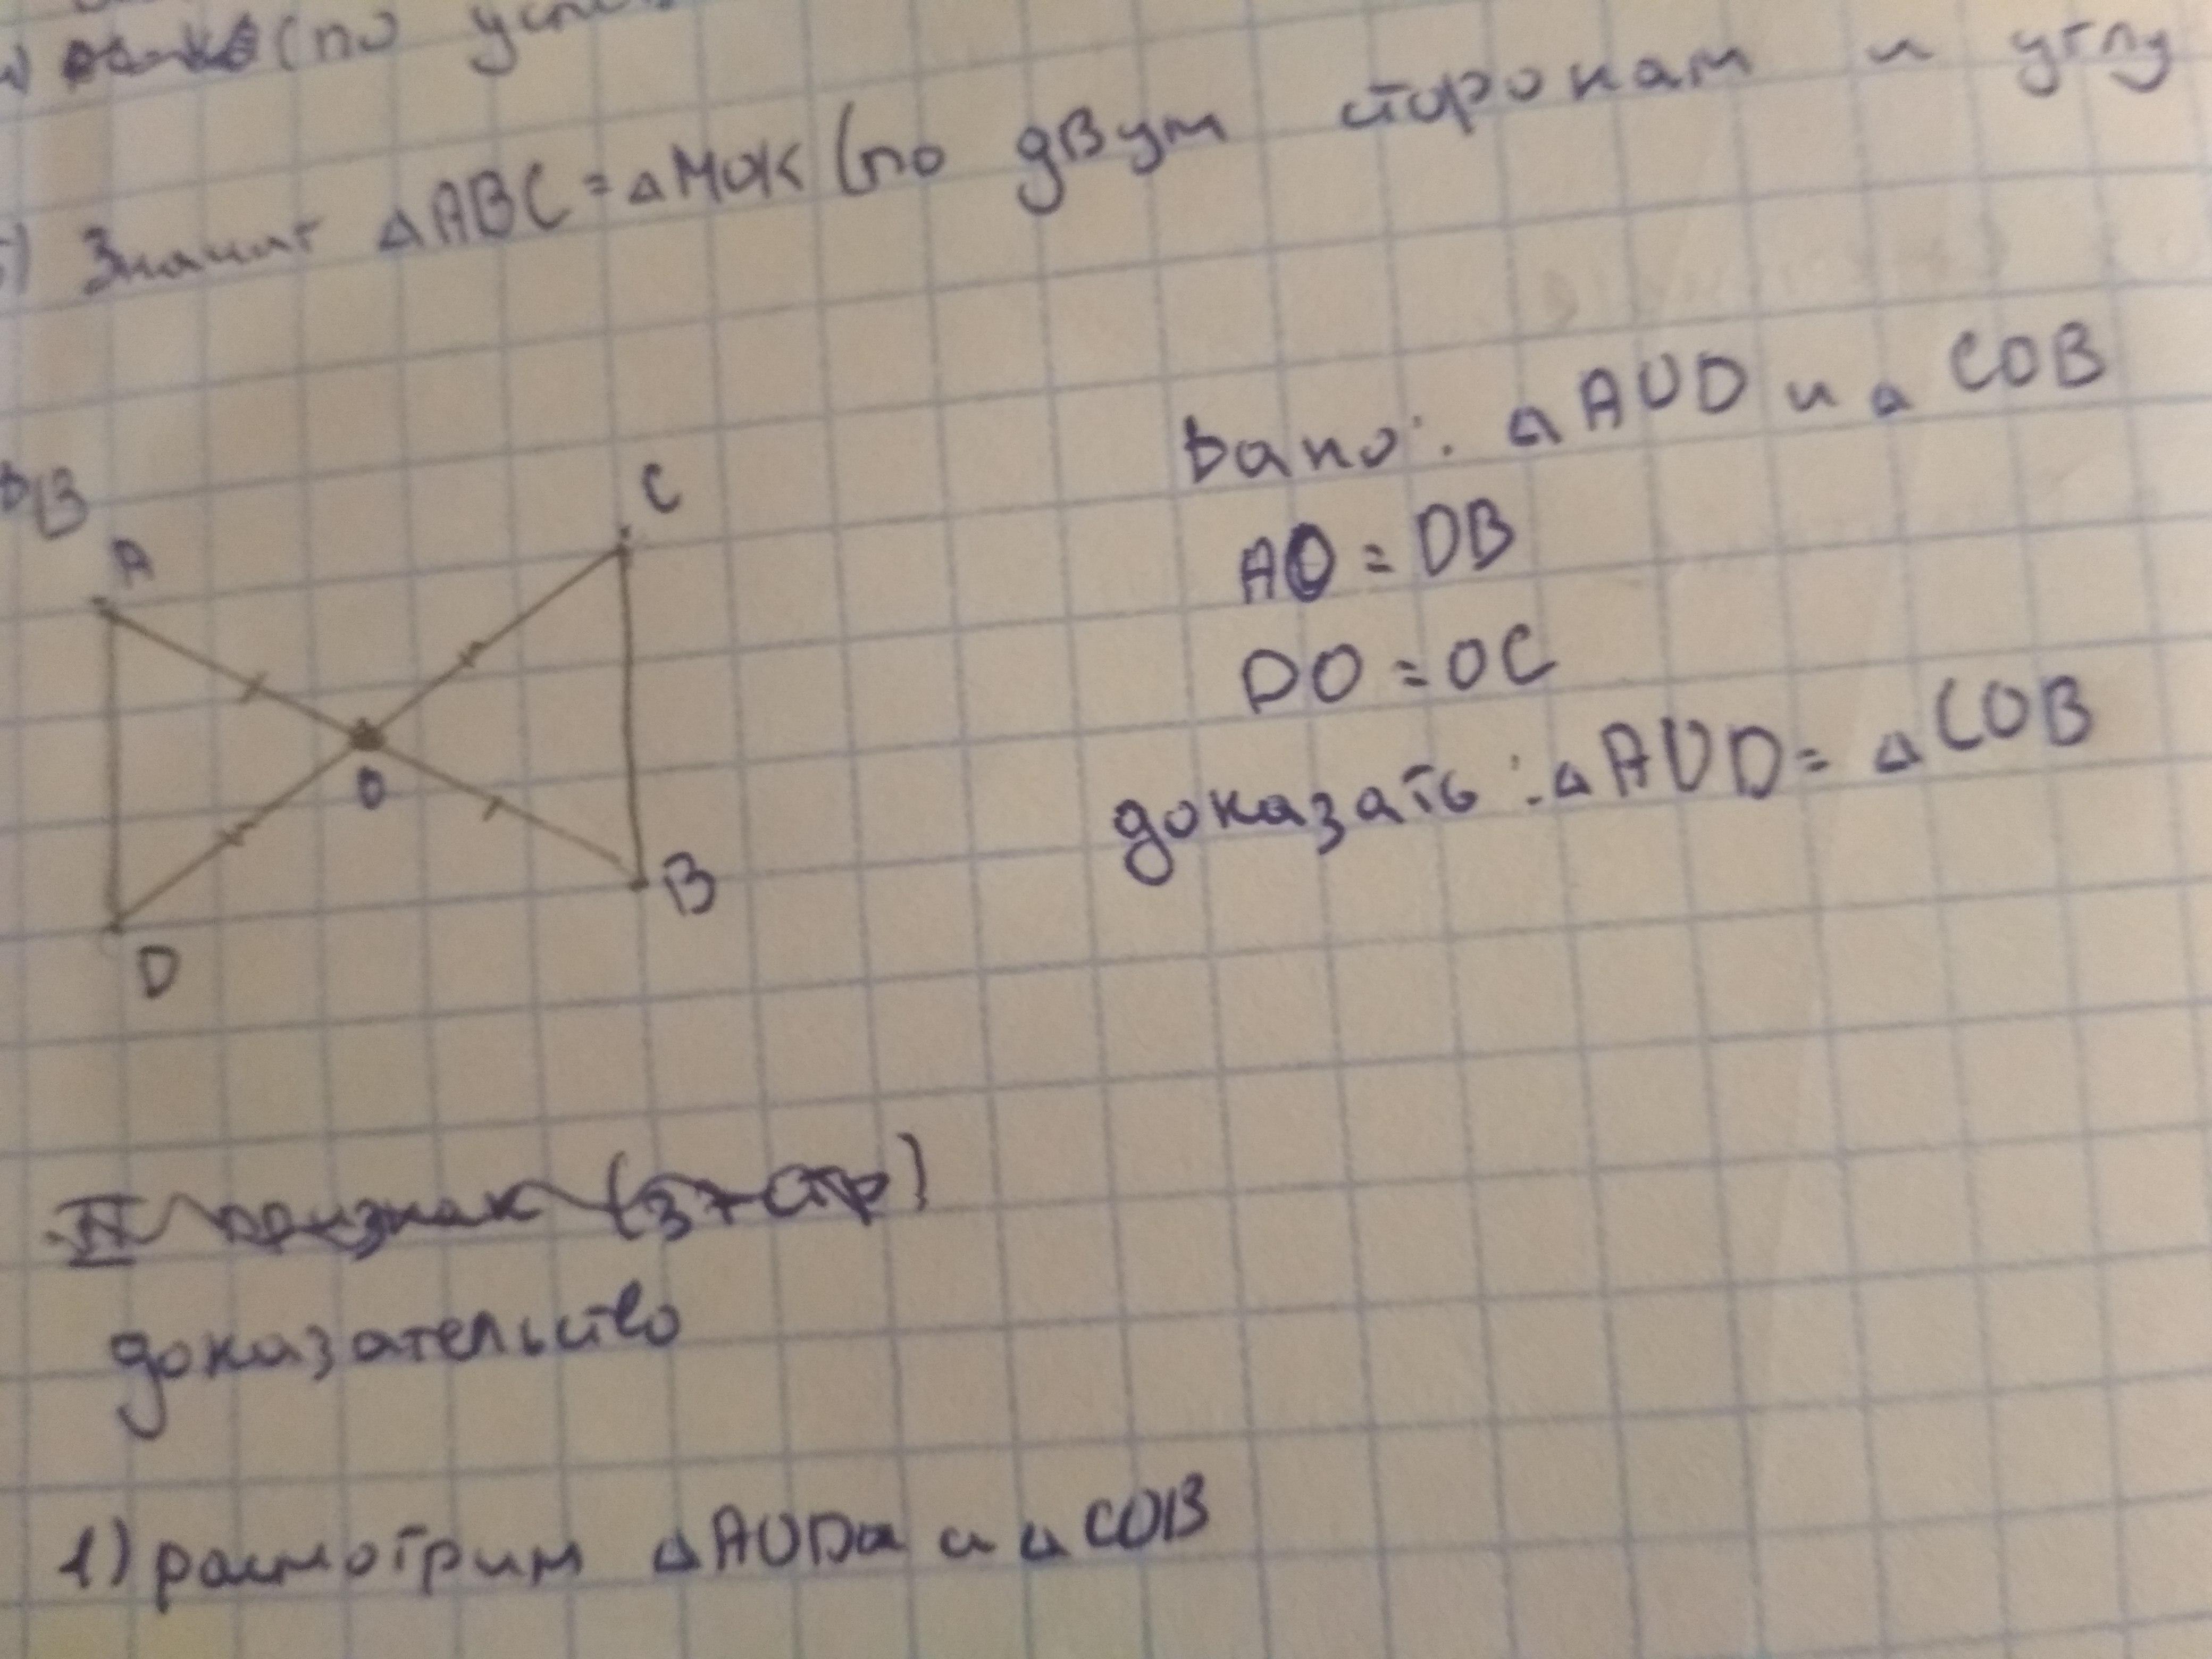 (по
Значит △ABC = △MOK (по двум сторонам и углу
Дано: △AOD и △COB
AO = OB
DO = OC
доказать: △AOD = △COB
A
C
O
B
D
II признак (37 стр)
доказательство
1) расмотрим △AOD и △COB